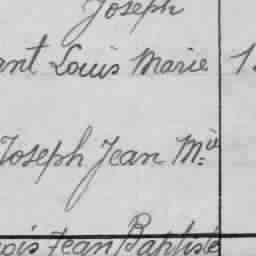 Joseph
ant Louis Marie 1
Joseph Jean M.ie
çois Jean Baptiste